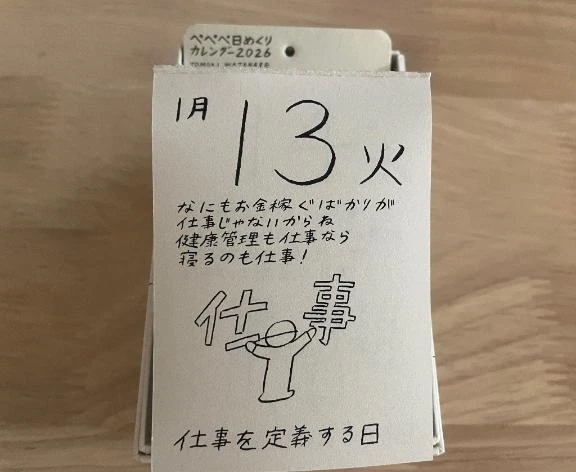 ペペペ日めくり
カレンダー2026
1月 13 火
なにもお金稼ぐばかりが
仕事じゃないからね
健康管理も仕事なら
寝るのも仕事!
仕事
仕事を定義する日